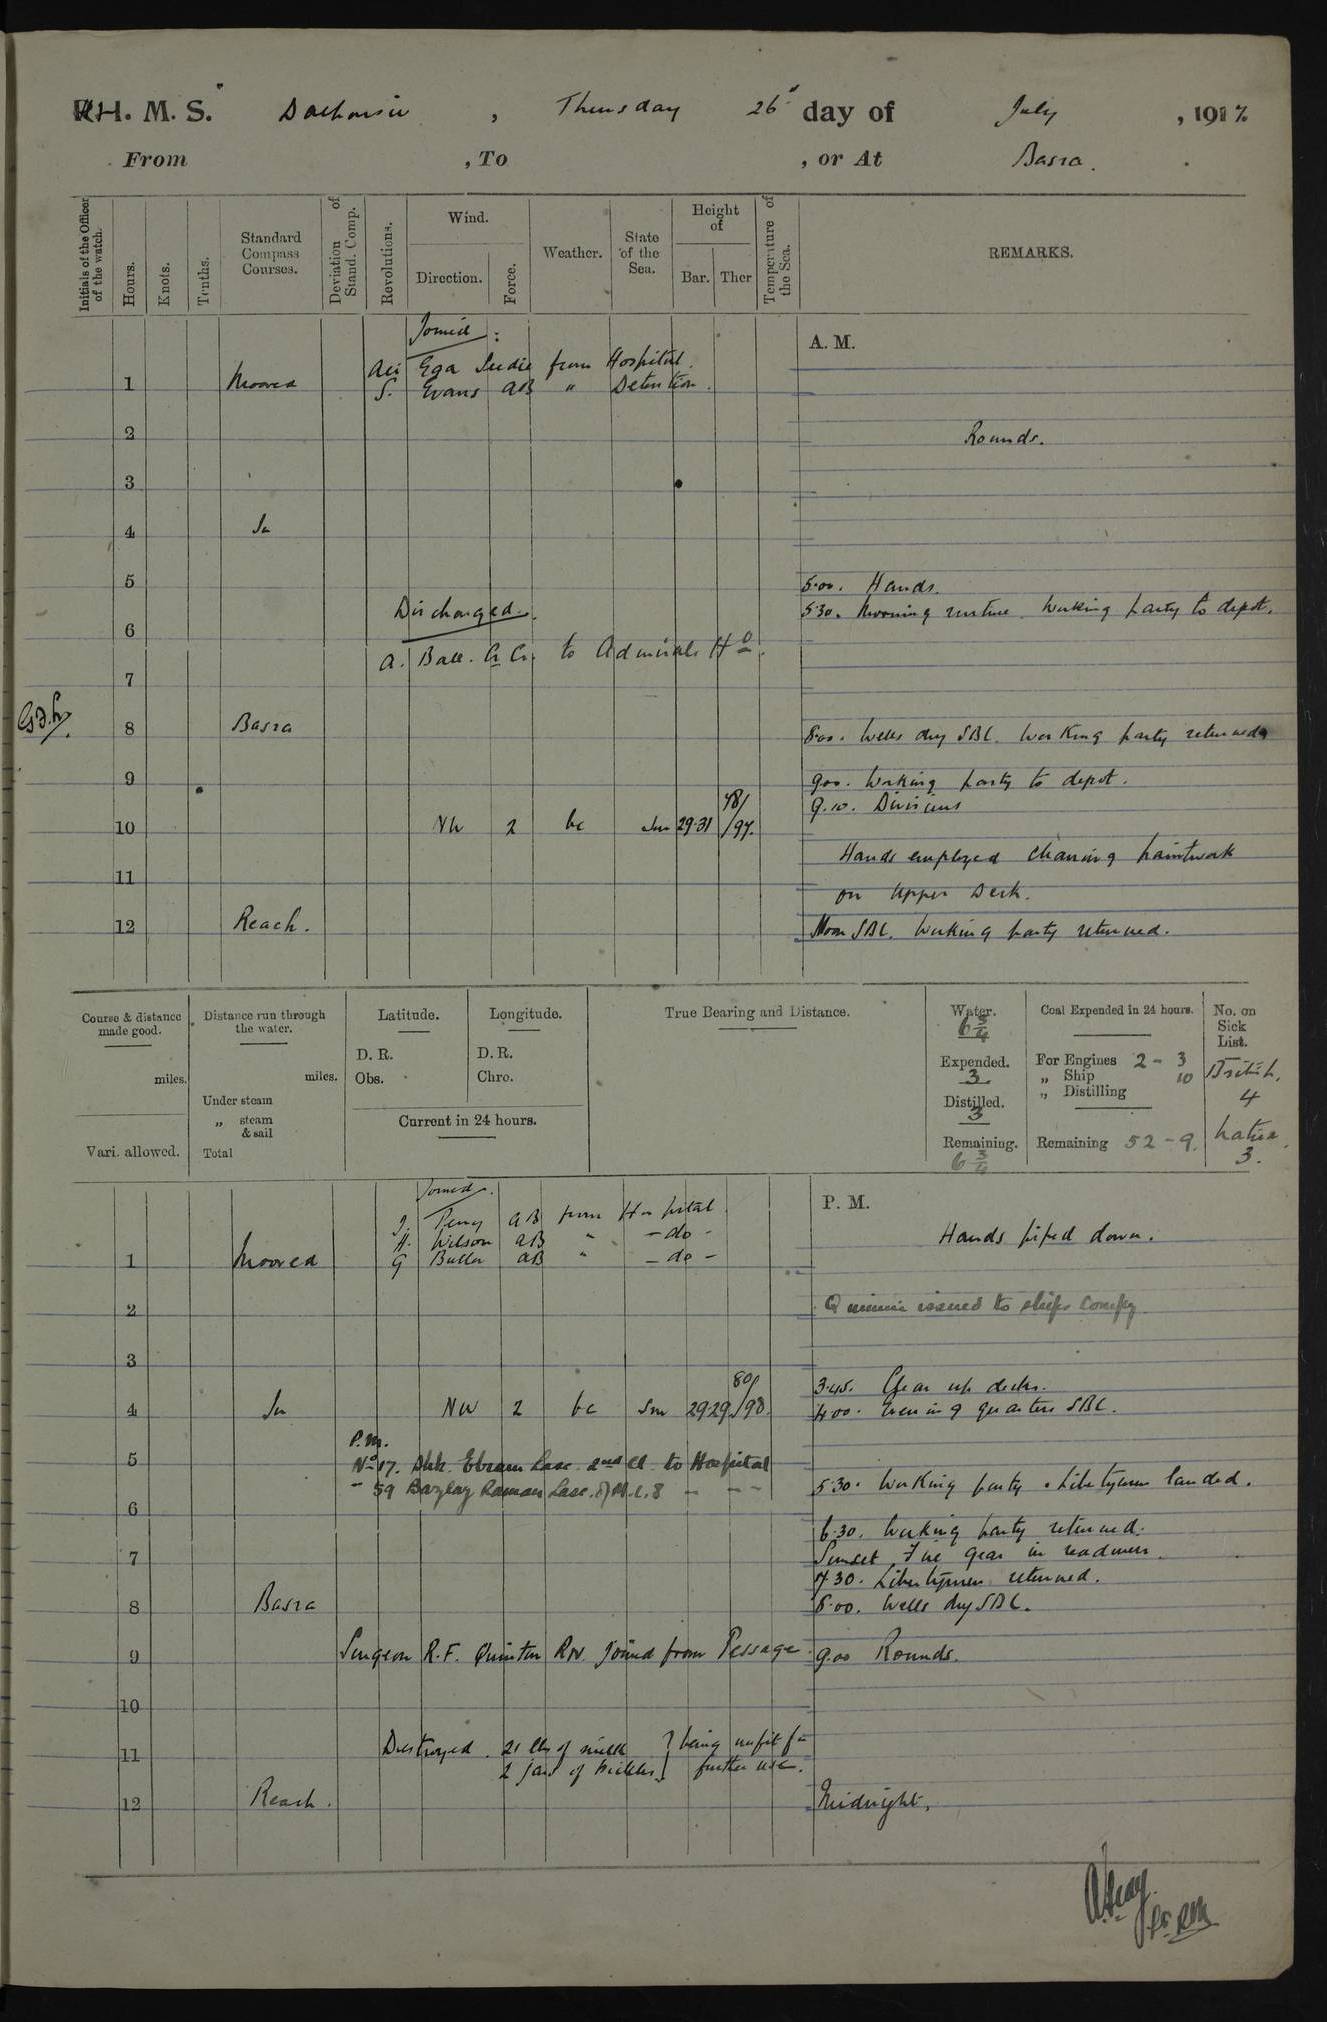 H. M. S. Dalhousie, Thursday 26 day of July, 1917
From , To , or At Basra.
Initials of the Officer of the watch.
Hours.
Knots.
Tenths.
Standard Compass Courses.
Deviation of Stand. Comp.
Revolutions.
Wind.
Direction.
Force.
Weather.
State of the Sea.
Height of
Bar. Ther
Temperature of the Sea.
REMARKS.
Joined:
A. M.
Ali Ega Seedie from Hospital.
1 Moored S. Evans AB " Detention.
2 Rounds.
3
4 In
5 5.00. Hands.
Discharged. 5.30. Morning routine. Working party to depot.
6
A. Ball. to Admirals Ho.
7
8 Basra 8.00. Wells dry SBC. Working party returned
9 9.00. Working party to depot.
78/ 9.10. Divisions
10 NW 2 bc Sm 29.31 /97.
Hands employed cleaning paintwork
11
on Upper Deck.
12 Reach. Noon SBC. Working party returned.
Course & distance made good.
miles.
Vari. allowed.
Distance run through the water.
miles.
Under steam
„ steam & sail
Total
Latitude.
D. R.
Obs.
Longitude.
D. R.
Chro.
Current in 24 hours.
True Bearing and Distance.
Water.
6 3/4
Expended.
3.
Distilled.
3
Remaining.
6 3/4
Coal Expended in 24 hours.
For Engines 2 - 3
„ Ship 10
„ Distilling
Remaining 52 - 9.
No. on Sick List.
British,
4
Native,
3.
Joined.
P. M.
J. Perry AB from Hospital.
Hands piped down.
H. Wilson AB " - do -
1 Moored G Butler AB " - do -
2 Quinine issued to ships compy.
3
80/ 3.45. Clear up decks.
4 In NW 2 bc Sm 29.29 /98. 4.00. Evening quarters SBC.
P.M.
5 No 17. Shk. Ebram Lasc. 2nd Cl. to Hospital
" 59 Raman Lasc. of M.L.8 - - - 5.30. Working party & Libertymen landed.
6
6.30. Working party returned.
7 Sunset Fire gear in readiness.
7.30. Libertymen returned.
8 Basra 8.00. Wells dry SBC.
9 Surgeon R.F. Quinton R.N. joined from Passage 9.00 Rounds.
10
Destroyed. 21 lbs of milk } being unfit for
11 2 jars of pickles } further use.
12 Reach. Midnight.